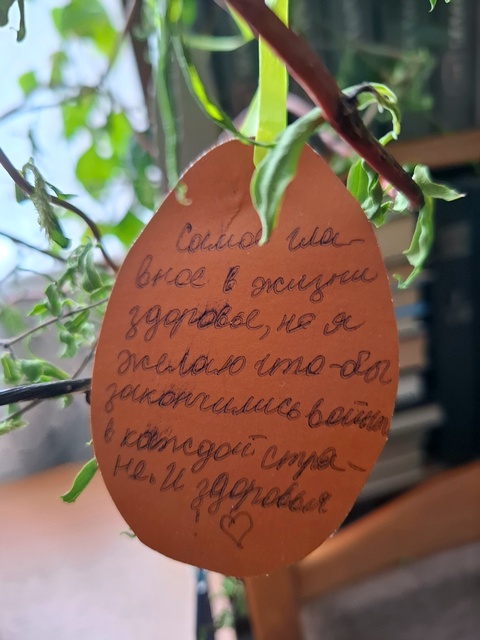 Самое гла-
вное в жизни
здоровье, но я
желаю что-бы
закончились войны
в каждой стра-
не. И здоровья
! ♡